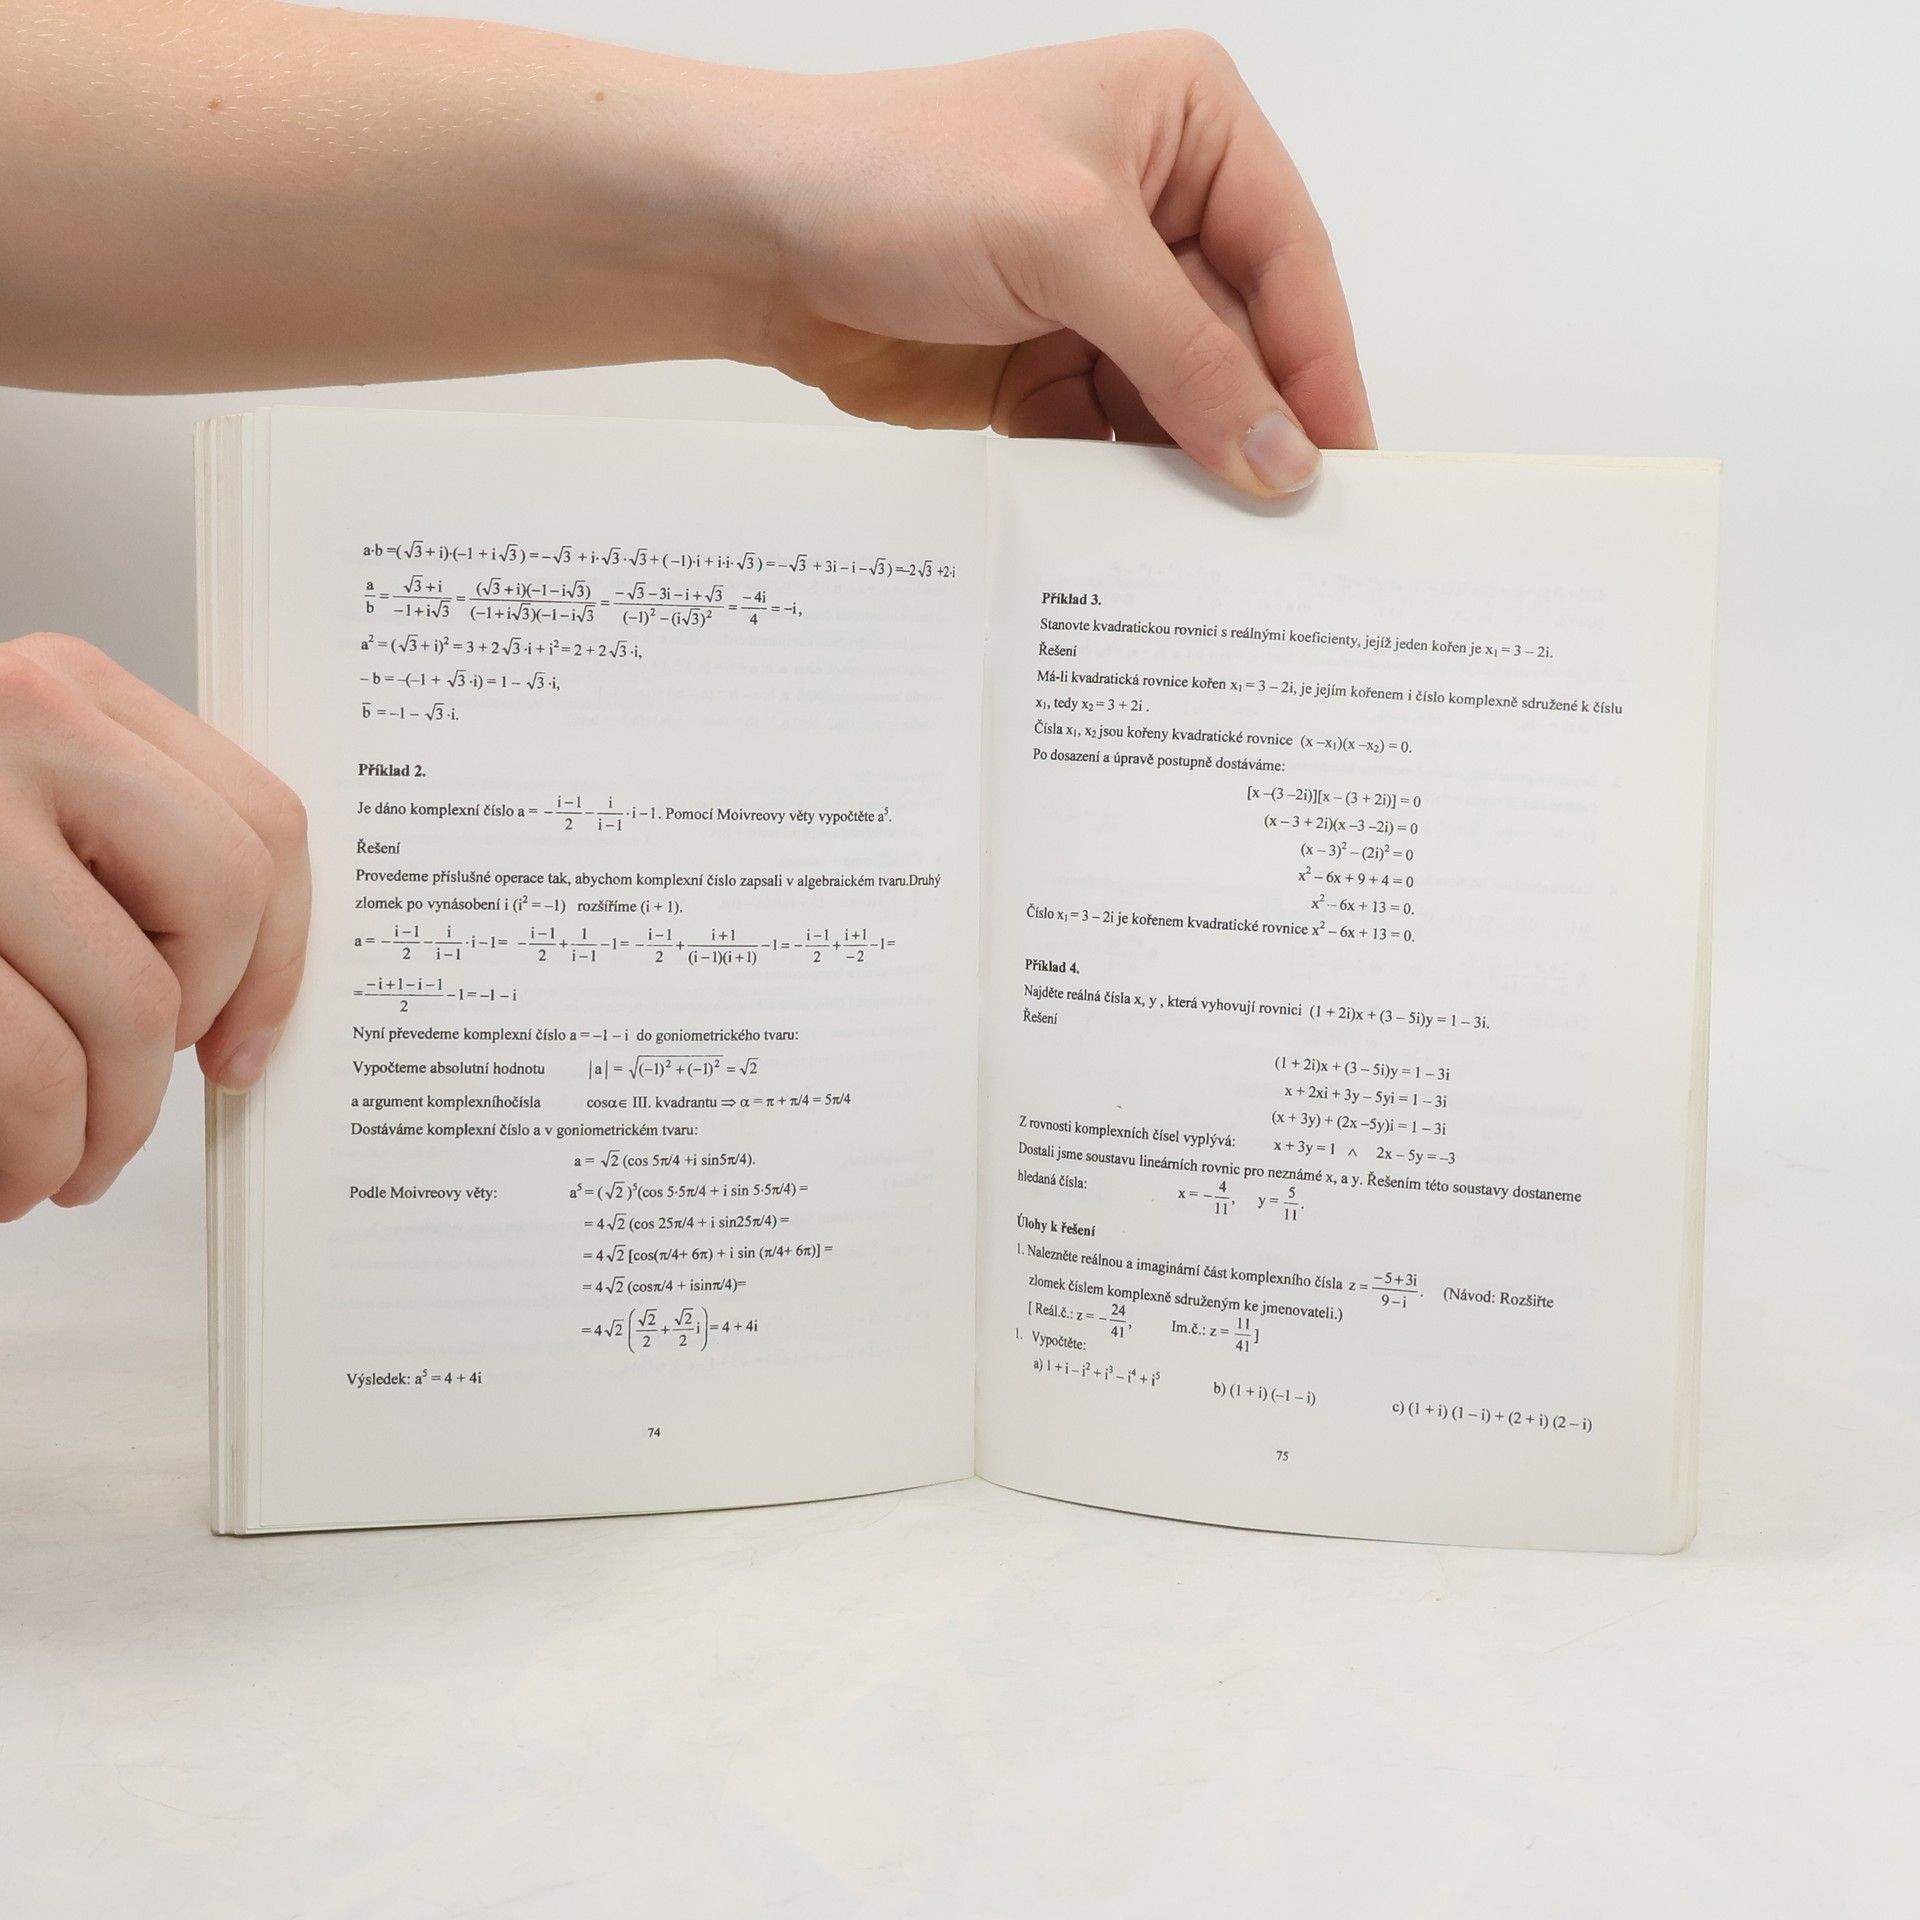 a·b =(√3 + i)·(–1 + i√3) = –√3 + i·√3·√3 + (–1)·i + i·i·√3) = –√3 + 3i – i – √3) =–2√3 +2·i
a/b = (√3+i)/(–1+i√3) = ((√3+i)(–1–i√3))/((–1+i√3)(–1–i√3)) = (–√3–3i–i+√3)/((–1)²–(i√3)²) = –4i/4 = –i,
a² = (√3 + i)² = 3 + 2√3·i + i² = 2 + 2√3·i,
– b = –(–1 + √3·i) = 1 – √3·i,
b̄ = –1 – √3·i.
Příklad 2.
Je dáno komplexní číslo a = –(i–1)/2 – i/(i–1)·i – 1. Pomocí Moivreovy věty vypočtěte a⁵.
Řešení
Provedeme příslušné operace tak, abychom komplexní číslo zapsali v algebraickém tvaru.Druhý
zlomek po vynásobení i (i² = –1) rozšíříme (i + 1).
a = –(i–1)/2 – i/(i–1)·i–1= –(i–1)/2 + 1/(i–1) –1= –(i–1)/2 + (i+1)/((i–1)(i+1)) –1 = –(i–1)/2 + (i+1)/–2 –1=
=(–i+1–i–1)/2 –1=–1–i
Nyní převedeme komplexní číslo a = –1 – i do goniometrického tvaru:
Vypočteme absolutní hodnotu |a| = √((–1)² + (–1)²) = √2
a argument komplexníhočísla cosα∈ III. kvadrantu ⇒ α = π + π/4 = 5π/4
Dostáváme komplexní číslo a v goniometrickém tvaru:
a = √2 (cos 5π/4 +i sin5π/4).
Podle Moivreovy věty: a⁵ = (√2)⁵(cos 5·5π/4 + i sin 5·5π/4) =
= 4√2 (cos 25π/4 + i sin25π/4) =
= 4√2 [cos(π/4+ 6π) + i sin (π/4+ 6π)] =
= 4√2 (cosπ/4 + isinπ/4)=
= 4√2 (√2/2 + √2/2 i) = 4 + 4i
Výsledek: a⁵ = 4 + 4i
74
Příklad 3.
Stanovte kvadratickou rovnici s reálnými koeficienty, jejíž jeden kořen je x₁ = 3 – 2i.
Řešení
Má-li kvadratická rovnice kořen x₁ = 3 – 2i, je jejím kořenem i číslo komplexně sdružené k číslu
x₁, tedy x₂ = 3 + 2i .
Čísla x₁, x₂ jsou kořeny kvadratické rovnice (x –x₁)(x –x₂) = 0.
Po dosazení a úpravě postupně dostáváme:
[x –(3 –2i)][x – (3 + 2i)] = 0
(x – 3 + 2i)(x –3 –2i) = 0
(x – 3)² – (2i)² = 0
x² – 6x + 9 + 4 = 0
x² – 6x + 13 = 0.
Číslo x₁ = 3 – 2i je kořenem kvadratické rovnice x² – 6x + 13 = 0.
Příklad 4.
Najděte reálná čísla x, y , která vyhovují rovnici (1 + 2i)x + (3 – 5i)y = 1 – 3i.
Řešení
(1 + 2i)x + (3 – 5i)y = 1 – 3i
x + 2xi + 3y – 5yi = 1 – 3i
(x + 3y) + (2x –5y)i = 1 – 3i
Z rovnosti komplexních čísel vyplývá: x + 3y = 1 ∧ 2x – 5y = –3
Dostali jsme soustavu lineárních rovnic pro neznámé x, a y. Řešením této soustavy dostaneme
hledaná čísla: x = –4/11, y = 5/11.
Úlohy k řešení
1. Nalezněte reálnou a imaginární část komplexního čísla z = (–5+3i)/(9–i). (Návod: Rozšiřte
zlomek číslem komplexně sdruženým ke jmenovateli.)
[ Reál.č.: z = –24/41, Im.č.: z = 11/41 ]
1. Vypočtěte:
a) 1 + i – i² + i³ – i⁴ + i⁵ b) (1 + i) (–1 – i) c) (1 + i) (1 – i) + (2 + i) (2 – i)
75